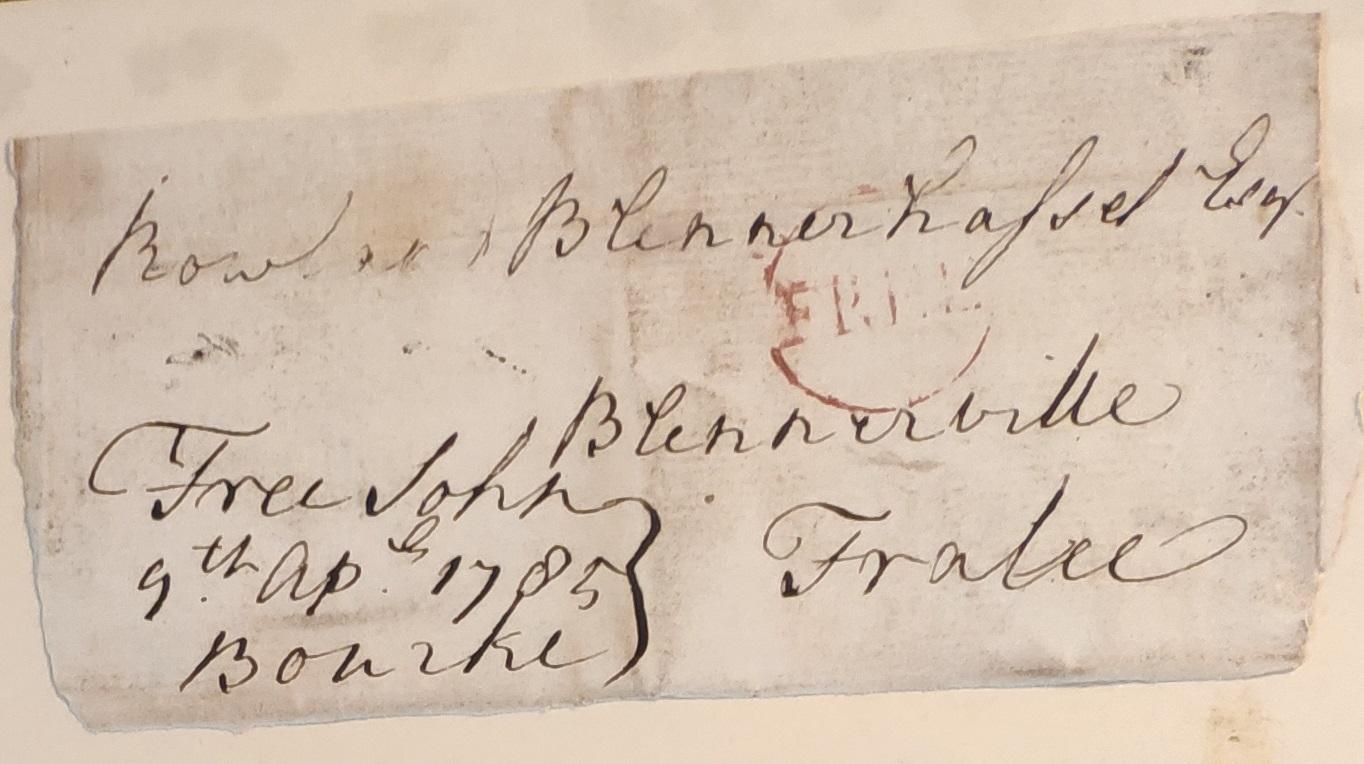 Blennerhasset Esqr.
FREE
Blennerville
Free John
9th. Apl. 1785
Bourke
Tralee